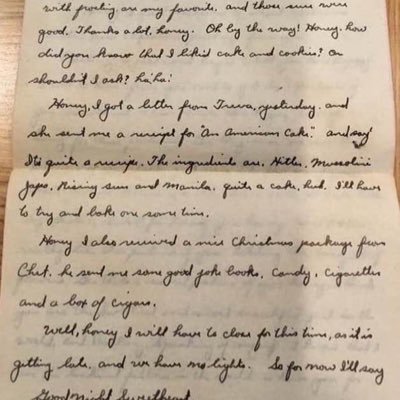 with frosting are my favorite, and those sure were
good. Thanks a lot, honey. Oh by the way! Honey, how
did you know that I liked cake and cookies? Or
shouldn't I ask? ha ha!
Honey, I got a letter from Treva, yesterday. and
she sent me a receipt for "An American Cake." and say!
Its quite a recipe. The ingredients are, Hitler, Mussolini
Japs, Rising sun and Manila, quite a cake, huh. I'll have
to try and bake one some time.
Honey I also received a nice Christmas package from
Chet, he sent me some good joke books, Candy, Cigarettes
and a box of cigars.
Well, honey I will have to close for this time, as it is
getting late, and we have no lights. So for now I'll say
Good Night Sweetheart